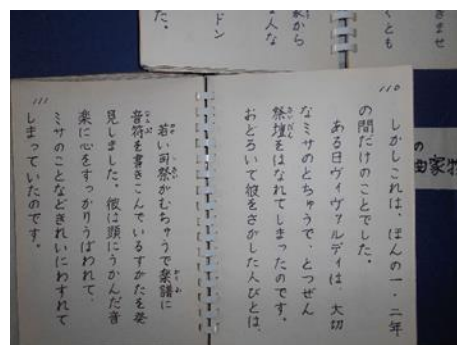 きませ
くとも
家から
人な
ドン
た。
110
しかしこれは、ほんの一・二年
の間だけのことでした。
ある日ヴィヴァルディは、大切
なミサのとちゅうで、とつぜん
祭壇をはなれてしまったのです。
おどろいて彼をさがした人びとは、
111
若い司祭がむちゅうで楽譜に
音符を書きこんでいるすがたを発
見しました。彼は頭にうかんだ音
楽に心をすっかりうばわれて、
ミサのことなどきれいにわすれて
しまっていたのです。
の
曲家物